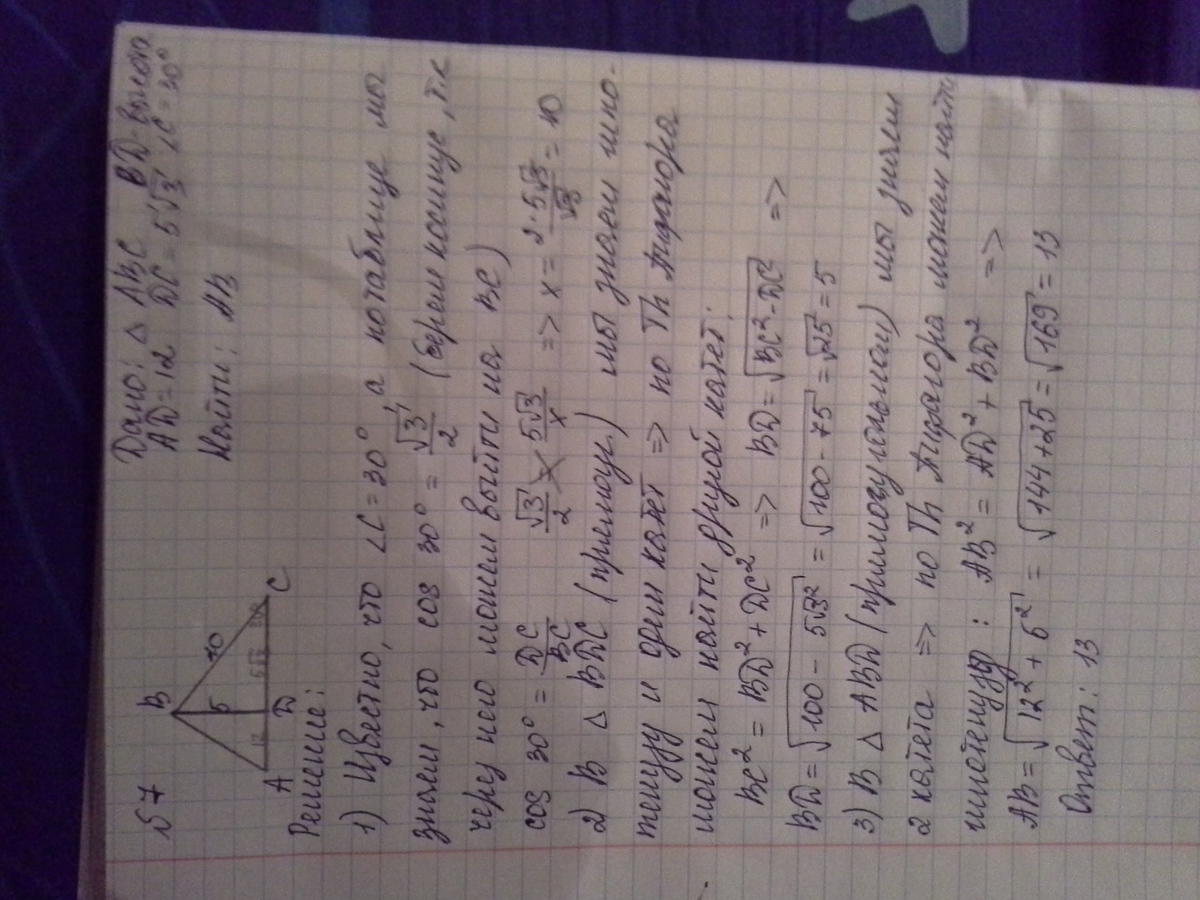 №7
Дано: △ ABC BD-высота
AD=12 DC=5√3 ∠C=30°
Найти: AB
B
10
5
12
5√3
A
D
C
Решение:
1) Известно, что ∠C=30° а по таблице мы
знаем, что cos 30° = √3/2 (берем косинус, т.к
через него можем выйти на BC)
cos 30° = DC/BC √3/2 = 5√3/x => x = 2·5√3/√3 = 10
2) В △ BDC (прямоуг.) мы знаем гипо-
тенузу и один катет => по Th Пифагора
можем найти другой катет:
BC² = BD² + DC² => BD = √BC²-DC² =>
BD = √100 - 5√3² = √100 - 75 = √25 = 5
3) В △ ABD (прямоугольном) мы знаем
2 катета => по Th Пифагора можем найти
гипотенузу: AB² = AD² + BD² =>
AB = √12² + 5² = √144+25 = √169 = 13
Ответ: 13